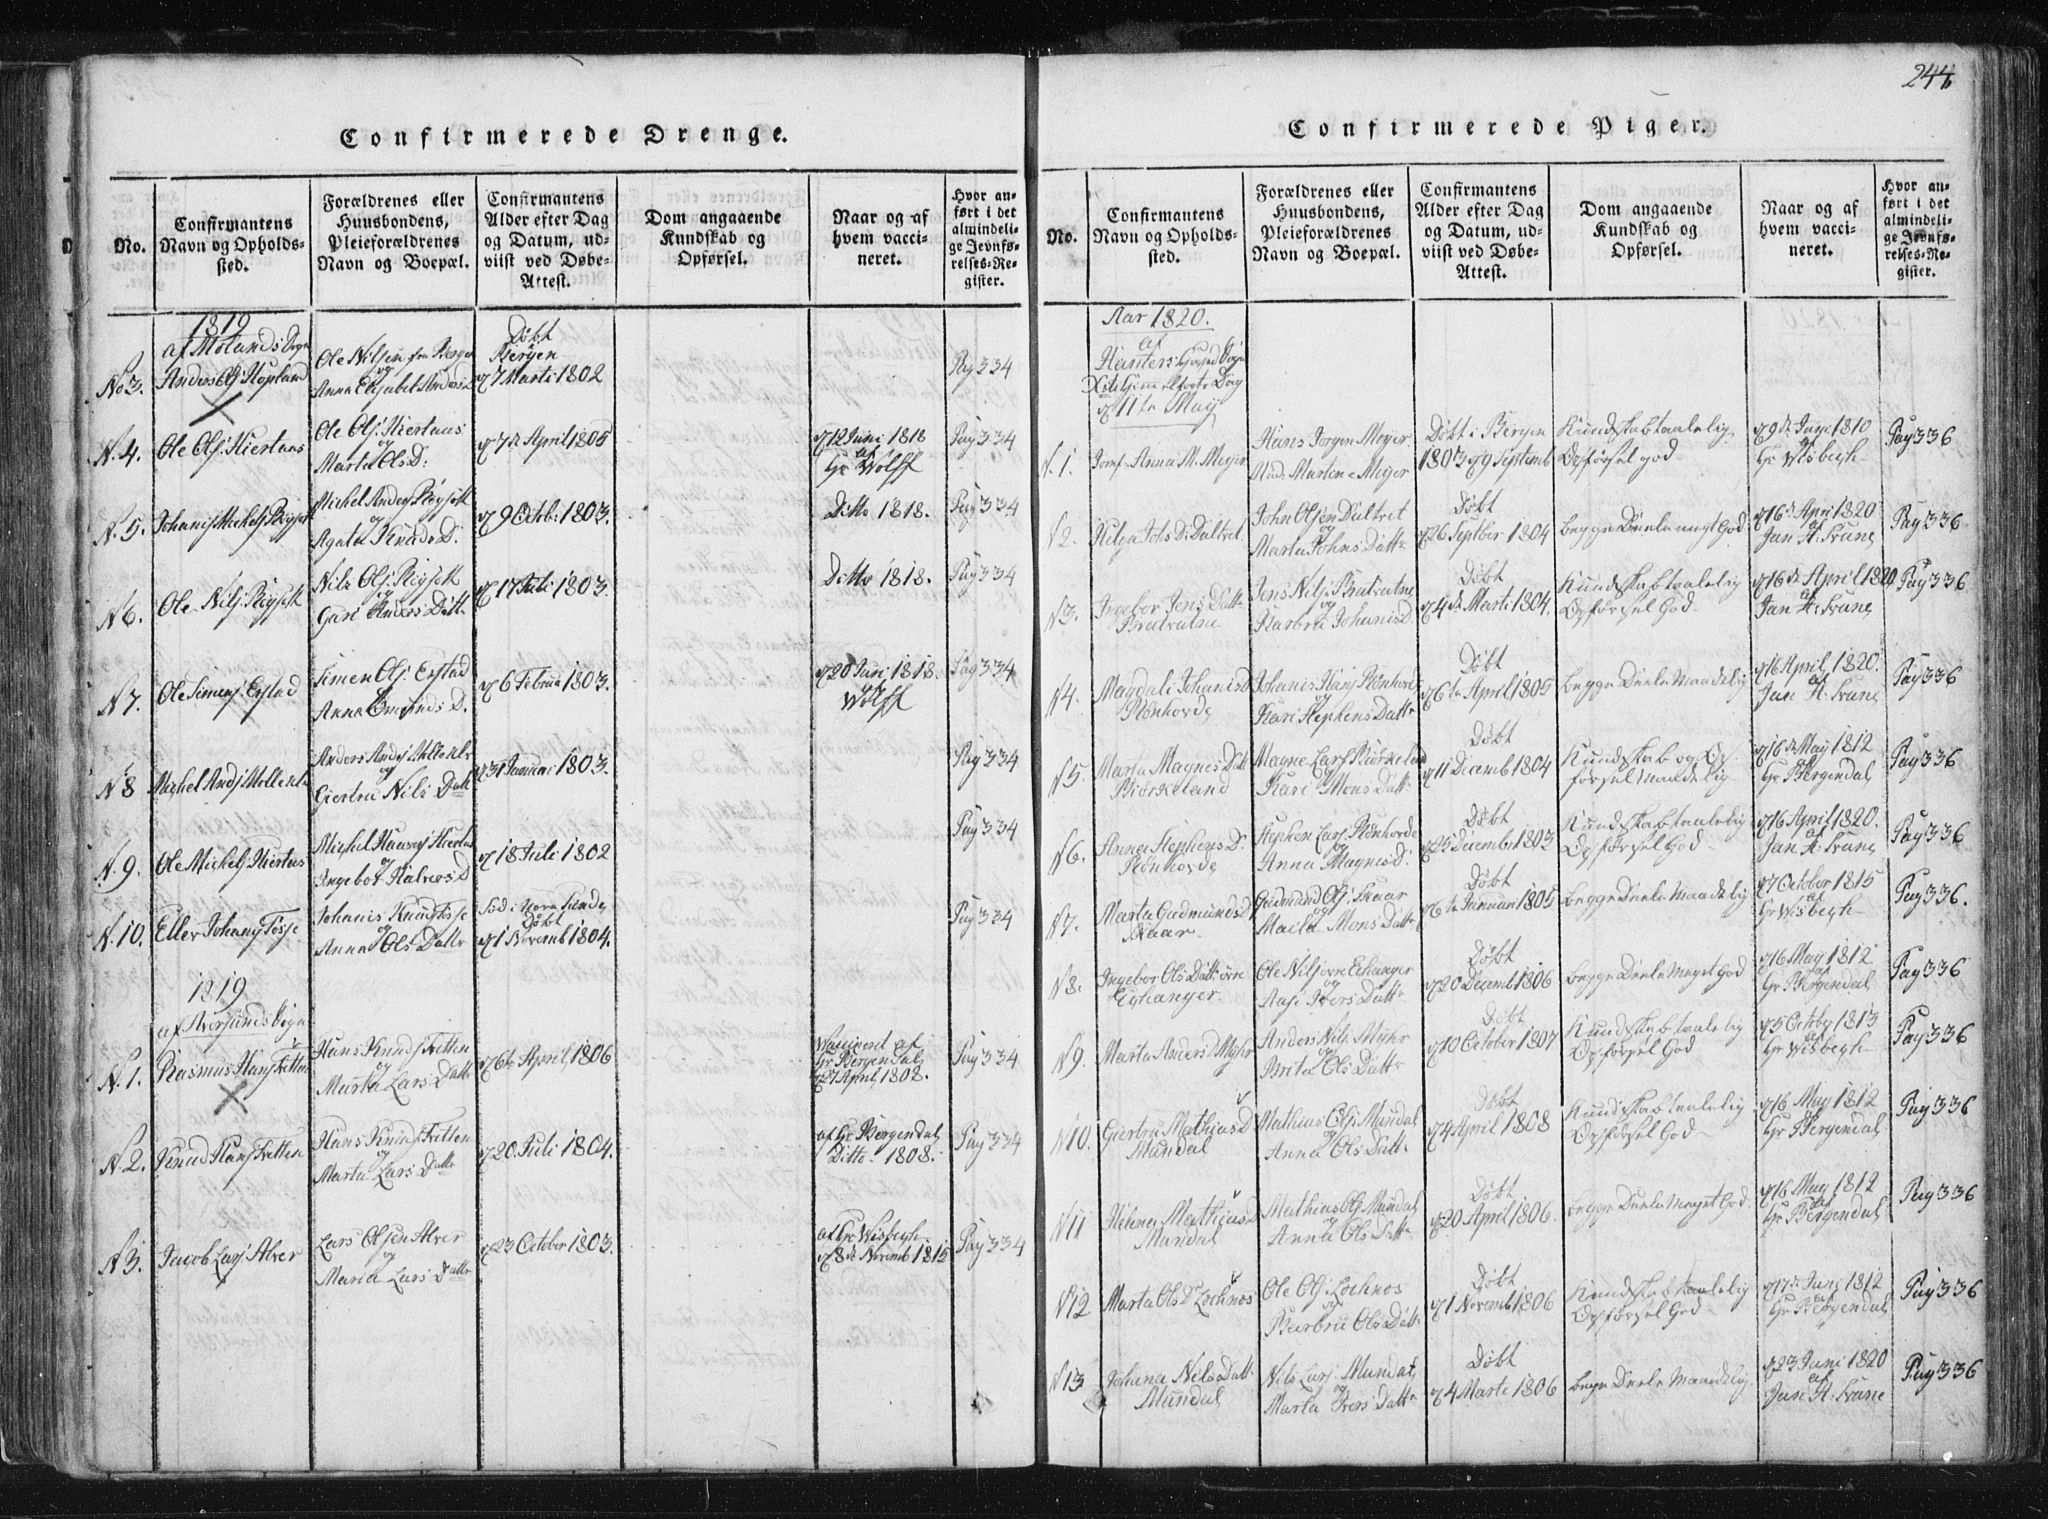 244
Confirmerede Drenge.
No.
Confirmantens
Navn og Opholds-
sted.
Forældrenes eller
Huusbondens,
Pleieforældrenes
Navn og Boepæl.
Confirmantens
Alder efter Dag
og Datum, ud-
viist ved Døbe-
Attest.
Dom angaaende
Kundskab og
Opførsel.
Naar og af
hvem vacci-
neret.
Hvor an-
ført i det
almindeli-
ge Jevnfø-
relses-Re-
gister.
1819
af Molands Sogn
No 3.
Anders Olj Hopland
Ole Nilsen fra Bergen
og
Anna Elisabet Anders D
Døbt
Bergen
7 Marti 1802
Pag 334
N. 4.
Ole Olj: Hiertaas
Ole Olj: Hiertaas
og
Marta Ols D:
7de April 1805
12 Juni 1818
af
Hr Wolff
Pag 334
N. 5.
Michel Anders
og
Agata Knuds D:
9 Octobr 1803.
Ditto 1818.
Pag 334
N 6.
Ole Nilj
Nils Olj
og
Gari Anders Datt
17 Juli 1803.
Ditto 1818.
Pag 334
N 7.
Ole Simens Erstad
Simen Olj Erstad
og
Anna D.
6 Februa 1803.
20 Juni 1818.
af
Wolff
Pag 334
N 8
Michel Andj Mollenda
Anders Andj
og
Giertru Nils Datt
31 Januari 1803.
Pag 334
N. 9.
Ole Michels Hiertas
Michel Hiertas
og
Ingebor Halvors D
18 Juli 1802
Pag 334
N. 10.
Eller Johans Tosse
Johanis Knuds Tosse
og
Anna Ols Dattr
Død i Nore Sunde
Døbt
1 Novemb 1804.
Pag 334
1819
af Alversunds Sogn
N. 1.
Rasmus Hans Fretten
Hans Knuds Fretten
og
Marta Lars Datt
6te April 1806
Vaccineret af
Hr Bergendal
27 April 1808.
Pag 334
N. 2.
Knud Hans Fretten
Hans Knuds Fretten
og
Marta Lars Datt
20. Juli 1804.
af Hr Bergendal
Ditto 1808.
Pag 334
N 3.
Jacob Larj Alver
Lars Olsen Alver
og
Maria Lars Datt
23 October 1803.
af Hr Wisbegh
8de Novemb 1815
Pag 334
Confirmerede Piger.
No.
Confirmantens
Navn og Opholds-
sted.
Forældrenes eller
Huusbondens,
Pleieforældrenes
Navn og Boepæl.
Confirmantens
Alder efter Dag
og Datum, ud-
viist ved Døbe-
Attest.
Dom angaaende
Kundskab og
Opførsel.
Naar og af
hvem vacci-
neret.
Hvor an-
ført i det
almindeli-
ge Jevnfø-
relses-Re-
gister.
Aar 1820.
af
Hosanger Sogn
Xsti Himmelfarts Dag
11te May
N 1.
Jomf. Anna M. Meyer
Hans Jorgen Meyer
Mad. Martene Meyer
Døbt i Bergen
1803 9 Septemb
Kundskab taalelig
Opførsel god
9de Juni 1810
af
Hr Wisbegh
Pag 336
N 2.
Helga Johs D: Daltvet
John Olsen Daltvet
og
Marta Johns Datt
Døbt
26 Septber 1804
begge Deele meget God
16 April 1820
af
Jan H. Trane
Pag 336
N 3.
Ingebor Jens Datt
Bratvatne
Jens Nilj: Bratvatne
og
Barbru Johanis D.
Døbt
4de Marti 1804.
Kundskab taalelig
Opførsel God
16de April 1820
af
Jan H. Trane
Pag 336
N 4.
Magdali Johanis D
Rønhovde
Johanis Hans Rønhovde
og
Kari Stephens Datt
Døbt
6te April 1805
begge Deele Maadelig
16 April 1820.
af
Jan H. Trane
Pag 336
N 5.
Marta Magnes Datt
Biørkeland
Magne Lars Biørkeland
og
Kari Mons Datt
Døbt
11 Decemb 1804
Kundskab og Op
førsel Maadelig
16de May 1812
Hr Bergendal
Pag 336
N 6.
Anna Stephens D.
Rønhovde
Stephen Larj Rønhovde
og
Anna Magnes D.
Døbt
25 Decembr 1803
Kundskab taalelig
Opførsel God
16 April 1820.
af
Jan H. Trane
Pag 336
N 7.
Marta Gudmunds D
Skaar
Gudmund Olj: Skaar
og
Marta Mons Datt
Døbt
6te Januari 1805
begge Deele Maadelig
7 October 1815
af
Hr Wisbegh
Pag 336.
N 8.
Ingebor Ols Datt øvre
Eichanger
Ole Nilj øvre Eichanger
og
Aasi Ivers Datt
Døbt
20 Decemb 1806
begge Deele Meget God
16 May 1812
af
Hr Bergendal
Pag 336
N 9.
Marta Anders D Myhr
Anders Nilj Myhr
og
Brita Ols Datt
Døbt
10 October 1807
Kundskab taalelig
Opførsel God
5 Octobr 1813
af
Hr Wisbegh
Pag 336
N 10.
Giertru Mathias D
Mundal
Mathias Olj: Mundal
og
Anna Ols Datt
Døbt
4 April 1808
Kundskab taalelig
Opførsel God
16 May 1812
af
Hr Bergendal
Pag 336
N 11
Helena Mathias D
Mundal
Mathias Olj Mundal
og
Anna Ols Datt
Døbt
20 April 1806.
begge Deele Meget God
16 May 1812
af
Hr Bergendal
Pag 336
N 12
Marta Ols D Lochnøs
Ole Olj Lochnøs
og
Barbru Ols Datt
Døbt
1 Novemb 1806
Kundskab taalelig
Opførsel God
17de Juni 1812
af
Hr Bergendal
Pag 336
N 13
Johana Nils Datt
Mundal
Nils Larj: Mundal
og
Marta Ivers Datt
Døbt
4 Marti 1806
begge Deele Maadelig
23 Juni 1820
af
Jan H. Trane
Pag 336